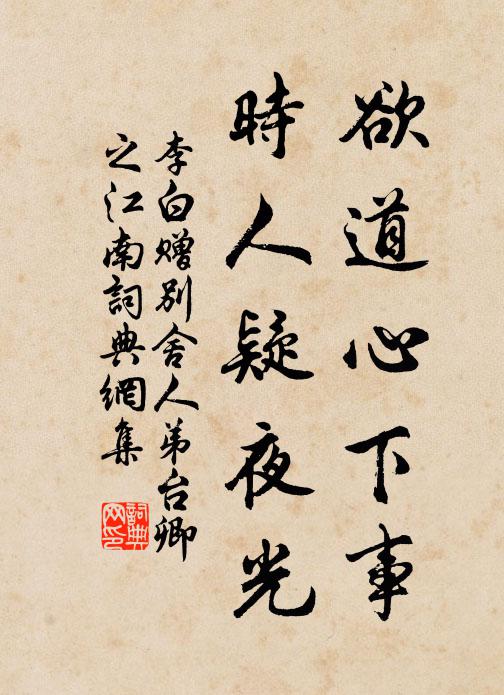 欲道心下事
時人疑夜光
李白贈別舍人弟台卿
之江南詞典網集
詞典
网印